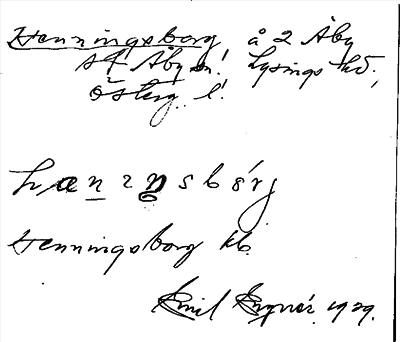 Henningsborg, å 2 Åby
sf Åby sn. Lysings hd.,
Österg. l.
hænıŋsbórj
Henningsborg hb.
Emil 1929.